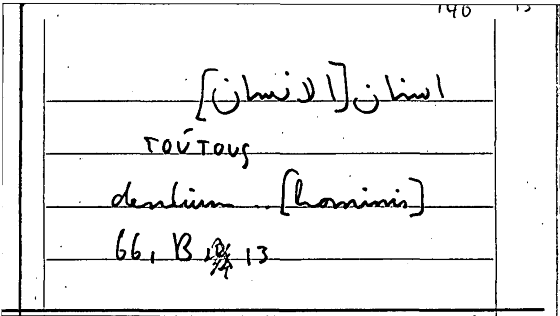 اسنان [الانسان]
τούτους
dentium .. [hominis]
66, B 13